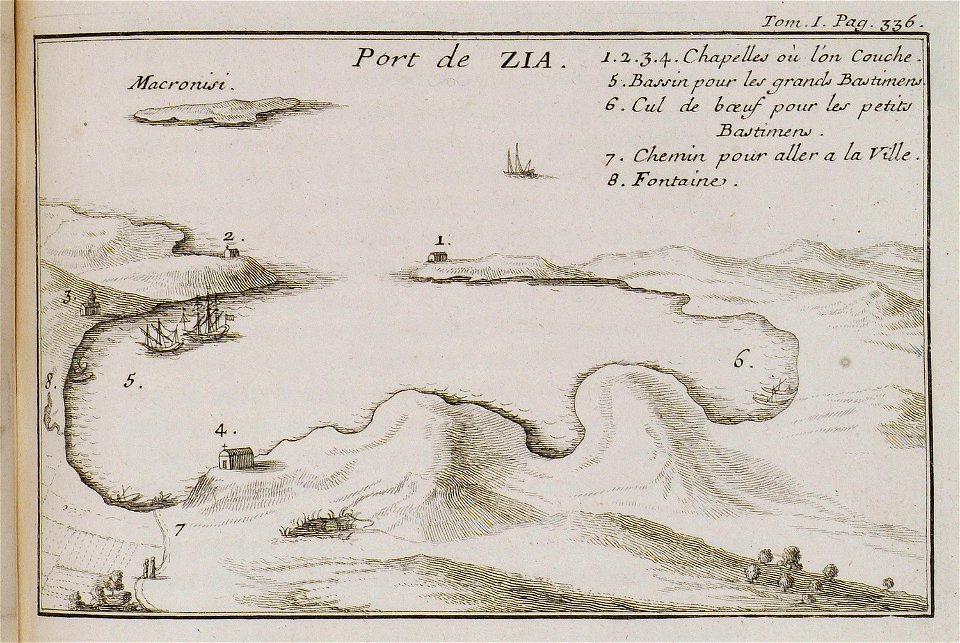 Tom. I. Pag. 336.
Port de ZIA.
1. 2. 3. 4. Chapelles où l'on Couche.
5. Bassin pour les grands Bastimens.
6. Cul de bœuf pour les petits
Bastimens.
7. Chemin pour aller a la Ville.
8. Fontaine.
Macronisi.
2.
1.
3.
8.
5.
6.
4.
7